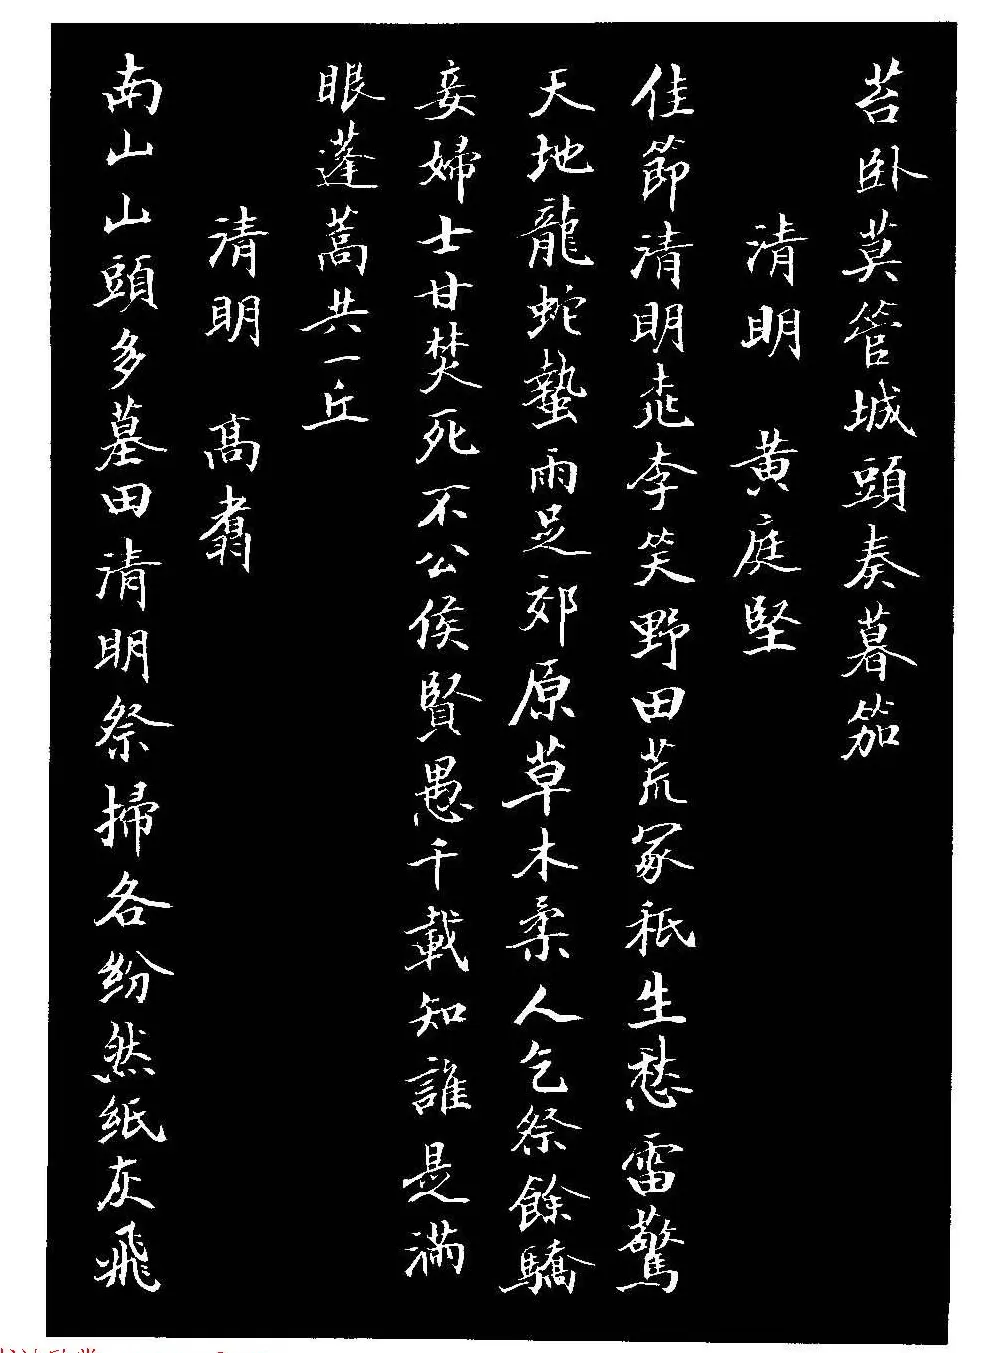 苔卧莫管城頭奏暮笳
清明 黄庭堅
佳節清明桃李笑野田荒冢秖生愁雷驚
天地龍蛇蟄雨足郊原草木柔人乞祭餘驕
妾婦士甘焚死不公侯賢愚千載知誰是滿
眼蓬蒿共一丘
清明 髙翥
南山山頭多墓田清明祭掃各紛然紙灰飛